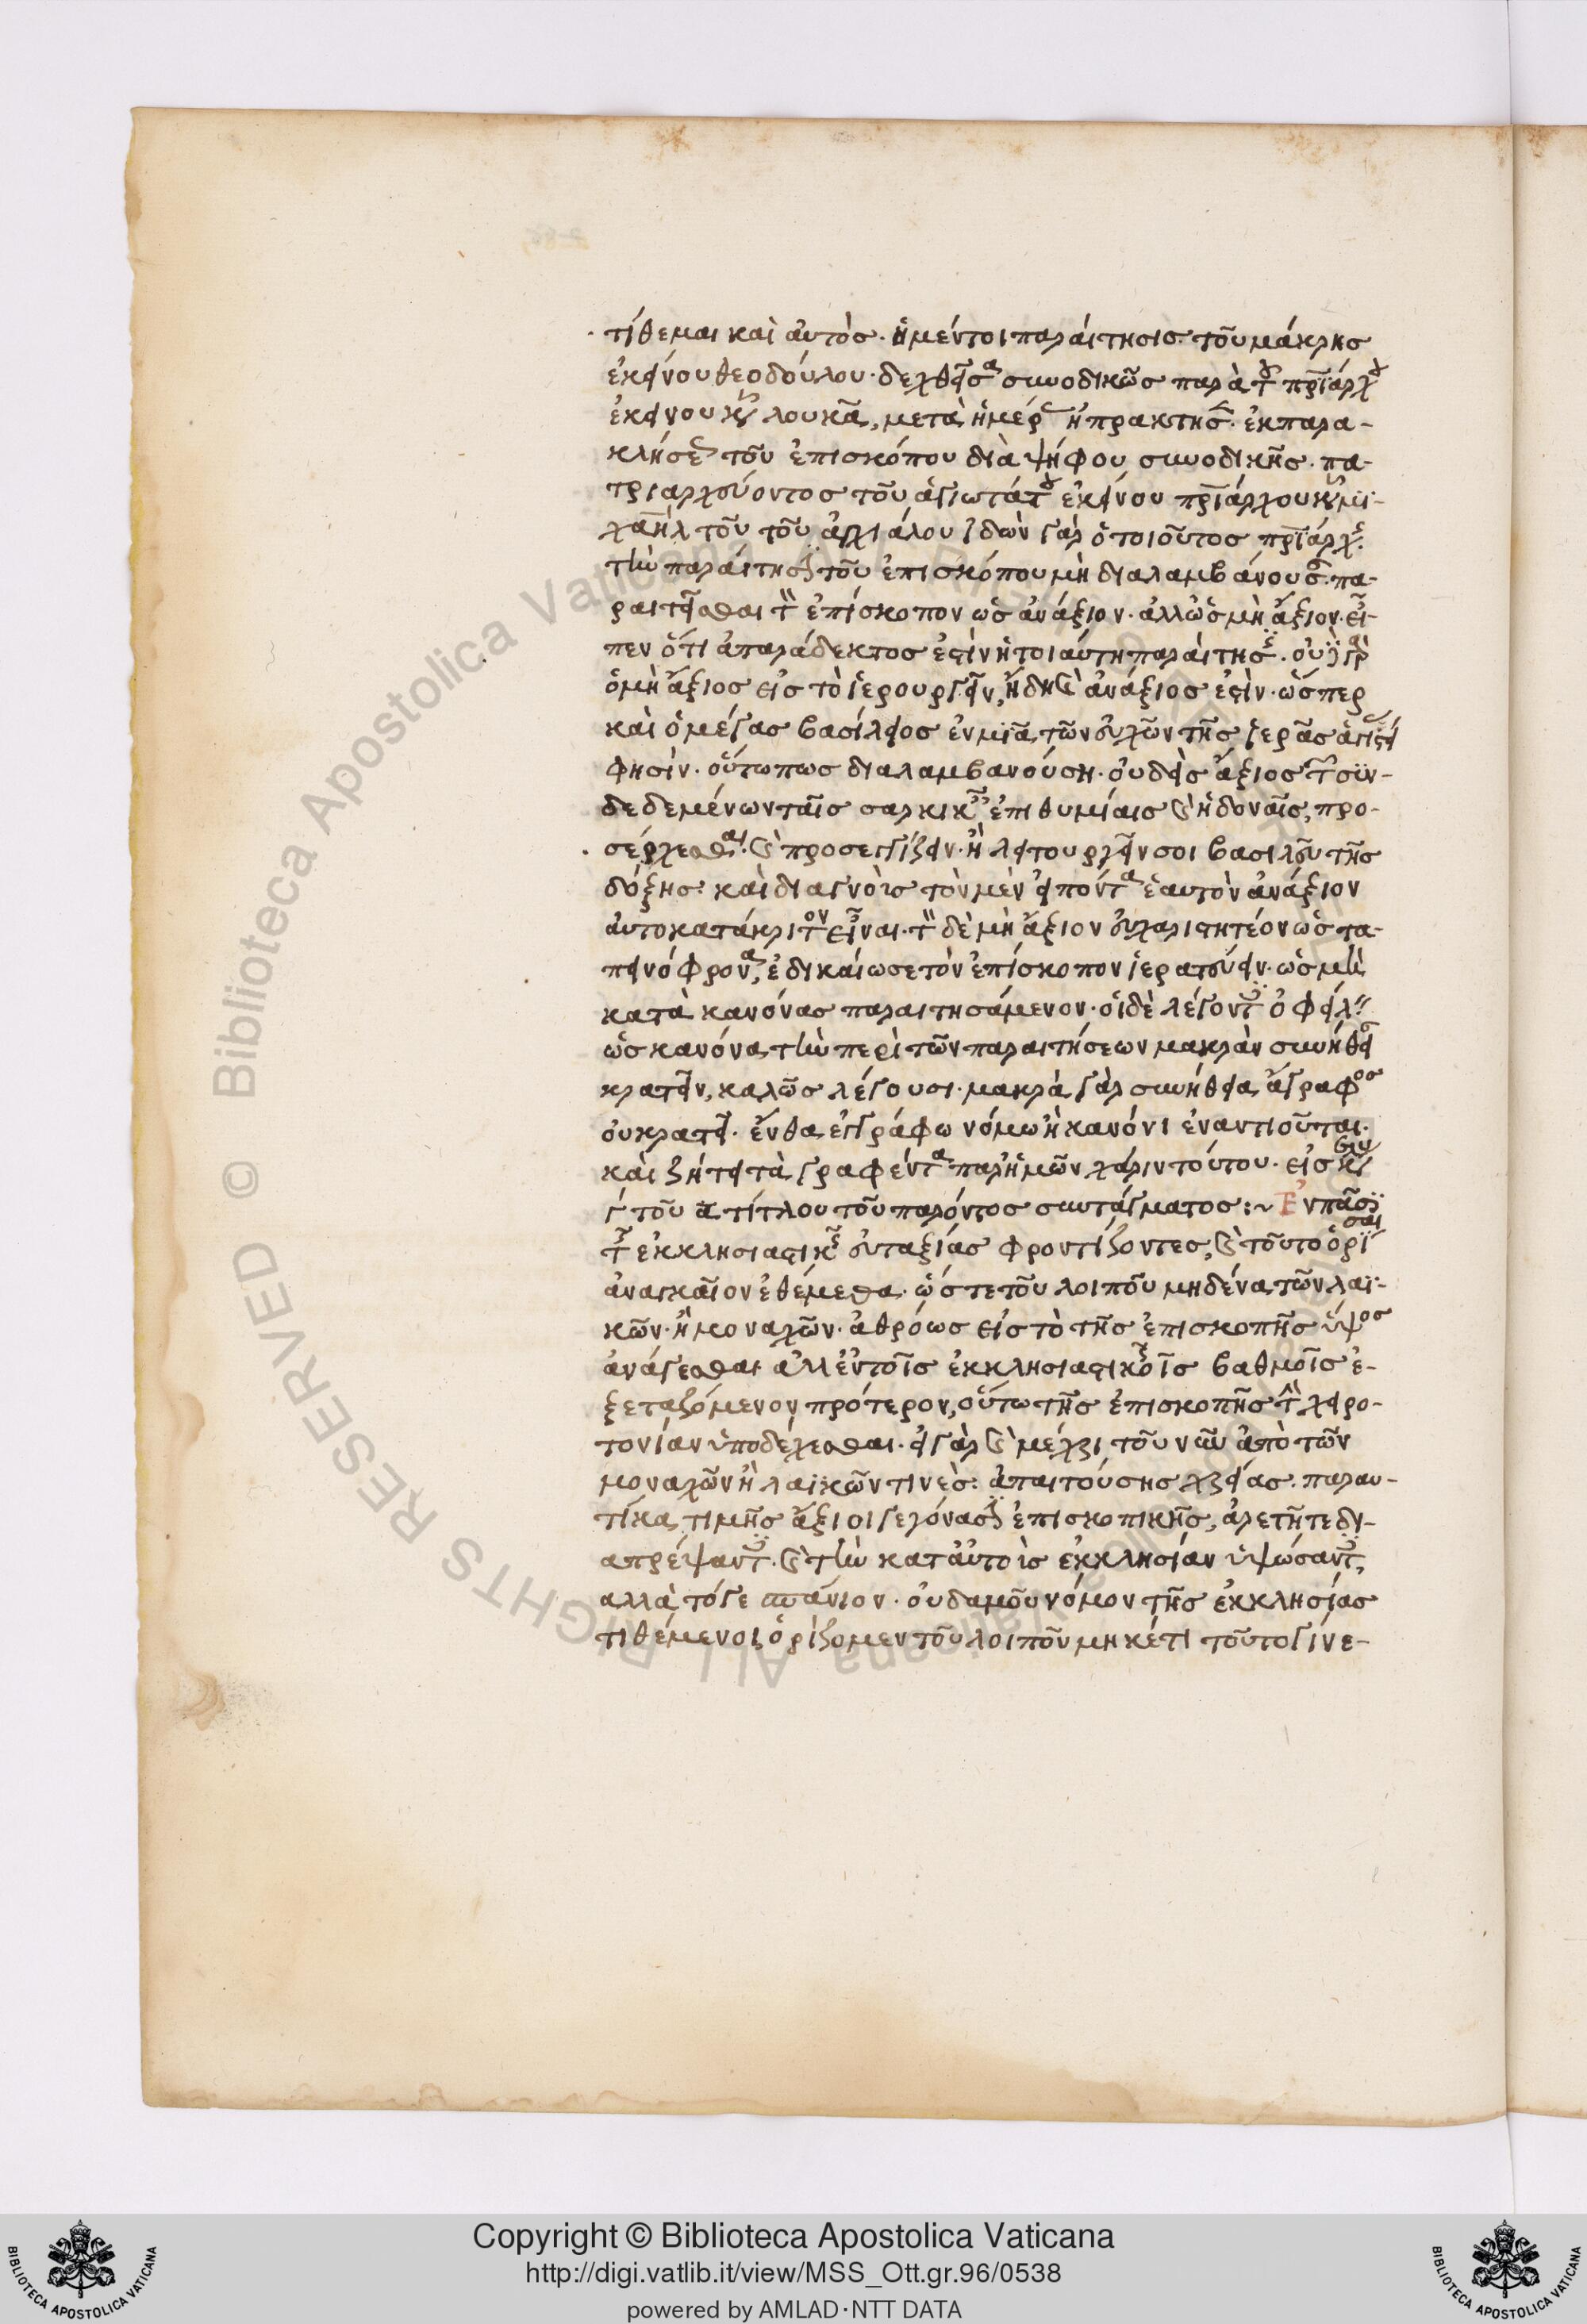 τίθεμαι καὶ αὐτὸσ· ἡ μέντοι παραίτησισ τοῦ μάκρησ
ἐκείνου θεοδούλου· δεχθεῖσα συνοδικῶσ παρὰ τοῦ πριάρχου
ἐκείνου κυροῦ λουκᾶ, μετὰ ἡμέρας ἠπρακτησε· ἐκ παρα-
κλήσεως τοῦ ἐπισκόπου διὰ ψήφου συνοδικῆσ· πα-
τριαρχεύοντοσ τοῦ ἁγιωτάτου ἐκείνου πριάρχου κυροῦ μι-
χαὴλ τοῦ τοῦ ἀγχιάλου ἰδὼν γὰρ ὁ τοιοῦτοσ πριάρχης
τὴν παραίτησιν τοῦ ἐπισκόπου μὴ διαλαμβάνουσαν πα-
ραιτεῖσθαι τὸν ἐπίσκοπον ὡσ ἀνάξιον· ἀλλ ὡσ μὴ ἄξιον· εἶ-
πεν ὅτι ἀπαράδεκτοσ ἐστὶν ἡ τοιαύτη παραίτησις· οὐ γὰρ
ὁ μὴ ἄξιοσ εἰσ τὸ ἱερουργεῖν, ἤδη καὶ ἀνάξιοσ ἐστὶν· ὥσπερ
καὶ ὁ μέγασ βασίλειοσ ἐν μιᾶ τῶν εὐχῶν τῆσ ἱερᾶσ ἁγιστείας
φησὶν· οὕτωπωσ διαλαμβανούση· οὐδεὶσ ἄξιοσ τῶν συν-
δεδεμένων ταῖσ σαρκικαῖς ἐπιθυμίαισ καὶ ἡδοναῖσ, προ-
σέρχεσθαι· καὶ προσεγγίζειν· ἢ λειτουργεῖν σοι βασιλεῦ τῆσ
δόξησ· καὶ διαγνοὺσ τὸν μὲν εἰπόντα ἑαυτὸν ἀνάξιον
αὐτοκατάκριτον εἶναι· τὸν δὲ μὴ ἄξιον εὐχαριστητέον ὡσ τα-
πεινόφρονα, ἐδικαίωσε τὸν ἐπίσκοπον ἱερατεύειν· ὡσ μὴ
κατὰ κανόνασ παραιτησάμενον· οἱ δὲ λέγοντες ὀφείλειν
ὡσ κανόνα τὴν περὶ τῶν παραιτήσεων μακρὰν συνήθειαν
κρατεῖν, καλῶσ λέγουσι· μακρὰ γὰρ συνήθεια ἄγραφοσ
οὐ κρατεῖ· ἔνθα ἐγγράφω νόμω ἢ κανόνι ἐναντιοῦται·
καὶ ζήτει τὰ γραφέντα παρ ἡμῶν χάριν τούτου· εἰσ κεφάλαιον
γ τοῦ α τίτλου τοῦ παρόντοσ συντάγματοσ :~ Ἐν πᾶσι
τῆς ἐκκλησιαστικῆς εὐταξίασ φροντίζοντεσ, καὶ τοῦτο ὁρίσαι
ἀναγκαῖον ἐθέμεθα· ὥστε τοῦ λοιποῦ μηδένα τῶν λαϊ-
κῶν· ἢ μοναχῶν· ἀθρόωσ εἰσ τὸ τῆσ ἐπισκοπῆσ ὕψοσ
ἀνάγεσθαι ἀλλ ἐν τοῖσ ἐκκλησιαστικοῖσ βαθμοῖσ ἐ-
ξεταζόμενον πρότερον, οὕτω τῆσ ἐπισκοπῆσ τὴν χειρο-
τονίαν ὑποδέχεσθαι· εἰ γὰρ καὶ μέχρι τοῦ νῦν ἀπὸ τῶν
μοναχῶν ἢ λαϊκῶν τινὲσ· ἀπαιτούσησ χρείασ· παραυ-
τίκα τιμῆσ ἄξιοι γεγόνασιν ἐπισκοπικῆσ, ἀρετῆ τε δι-
απρέψαντες· καὶ τὴν κατ αὐτοὺσ ἐκκλησίαν ὑψώσαντες,
ἀλλὰ τό γε σπάνιον· οὐδαμοῦ νόμον τῆσ ἐκκλησίασ
τιθέμενοι, ὁρίζομεν τοῦ λοιποῦ μηκέτι τοῦτο γίνε-
Copyright © Biblioteca Apostolica Vaticana
http://digi.vatlib.it/view/MSS_Ott.gr.96/0538
powered by AMLAD·NTT DATA